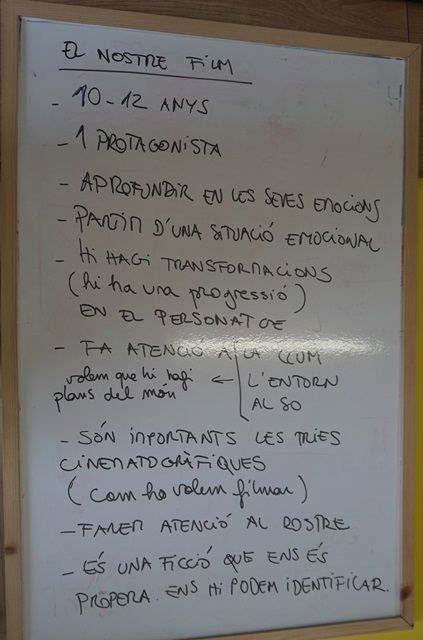 EL NOSTRE FILM
- 10-12 ANYS
- 1 PROTAGONISTA
- APROFUNDIR EN LES SEVES EMOCIONS
- PARTIM D'UNA SITUACIÓ EMOCIONAL
- HI HAGI TRANSFORMACIONS
(hi ha una progressió)
EN EL PERSONATGE
- FA ATENCIÓ A LA LLUM
volem que hi hagi ← L'ENTORN
plans del món AL SO
- SÓN IMPORTANTS LES TRIES
CINEMATOGRÀFIQUES
(com ho volem filmar)
- FAREM ATENCIÓ AL ROSTRE
- ÉS UNA FICCIÓ QUE ENS ÉS
PROPERA. ENS HI PODEM IDENTIFICAR.